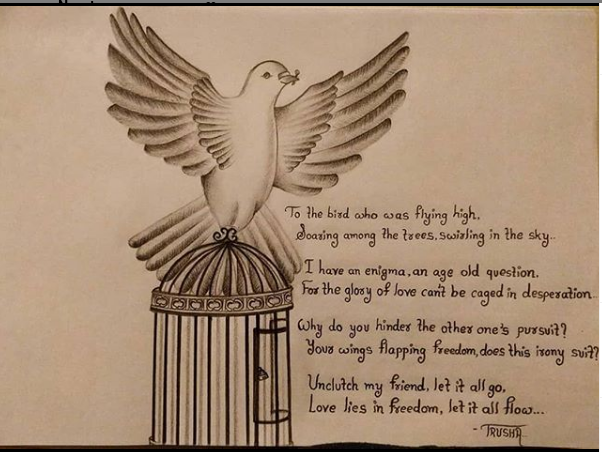 To the bird who was flying high,
Soaring among the trees, swirling in the sky..
I have an enigma, an age old question.
For the glory of love can't be caged in desperation..
Why do you hinder the other one's pursuit?
Your wings flapping freedom, does this irony suit?
Unclutch my friend, let it all go,
Love lies in freedom, let it all flow...
- TRUSHA